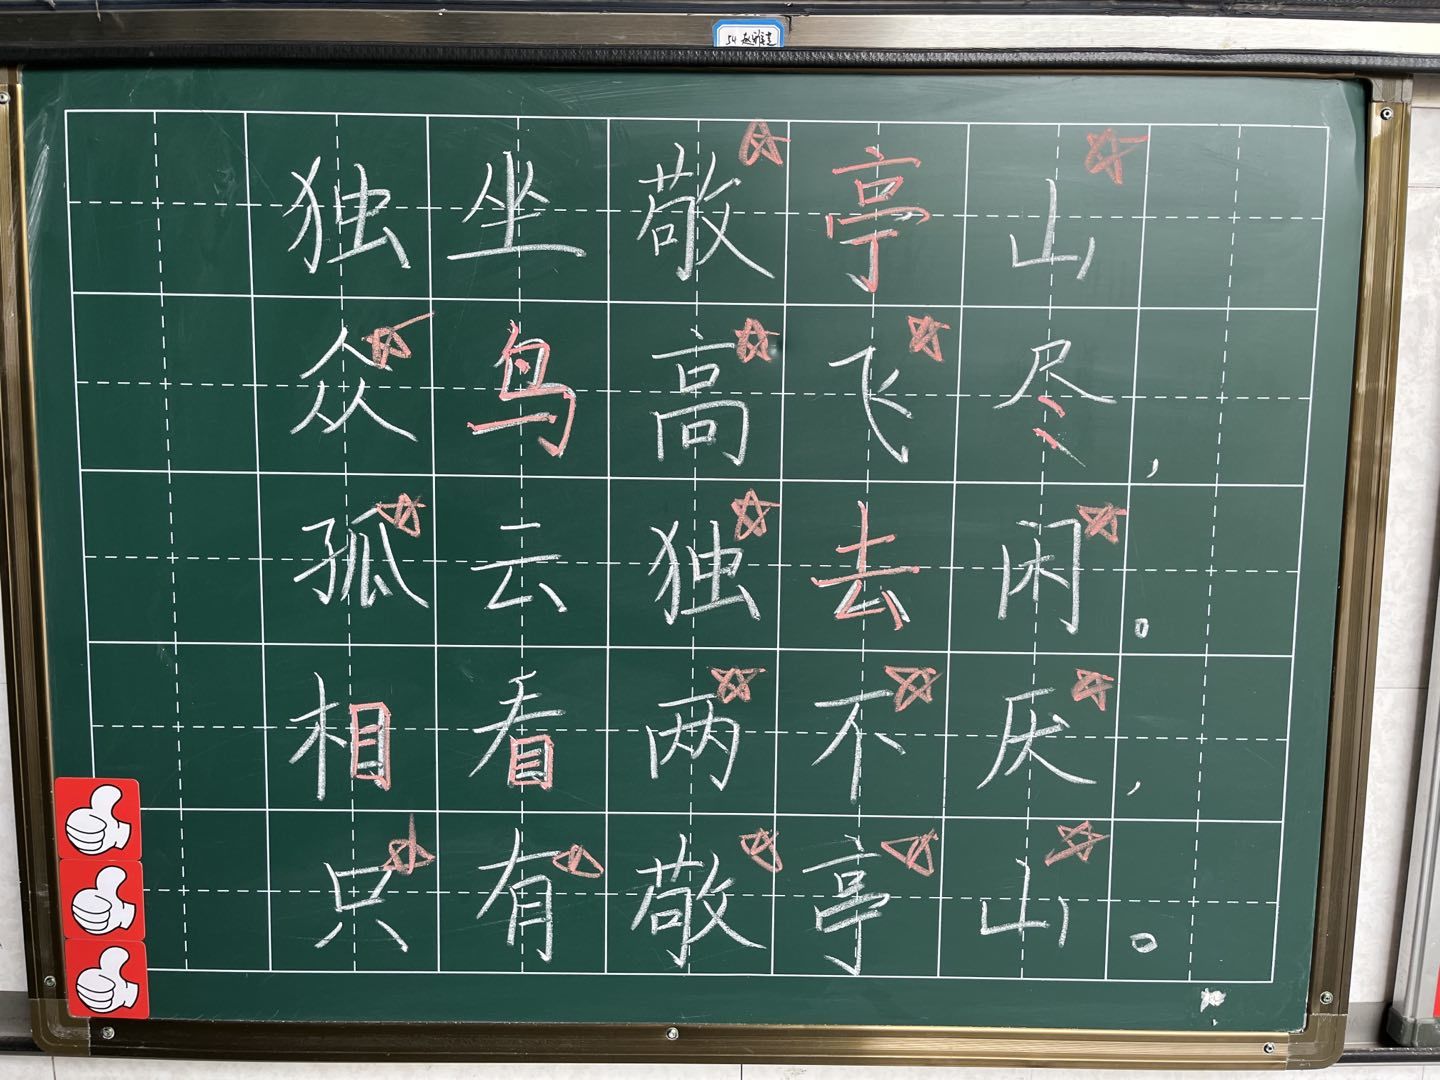 独坐敬亭山
众鸟高飞尽，
孤云独去闲。
相看两不厌，
只有敬亭山。